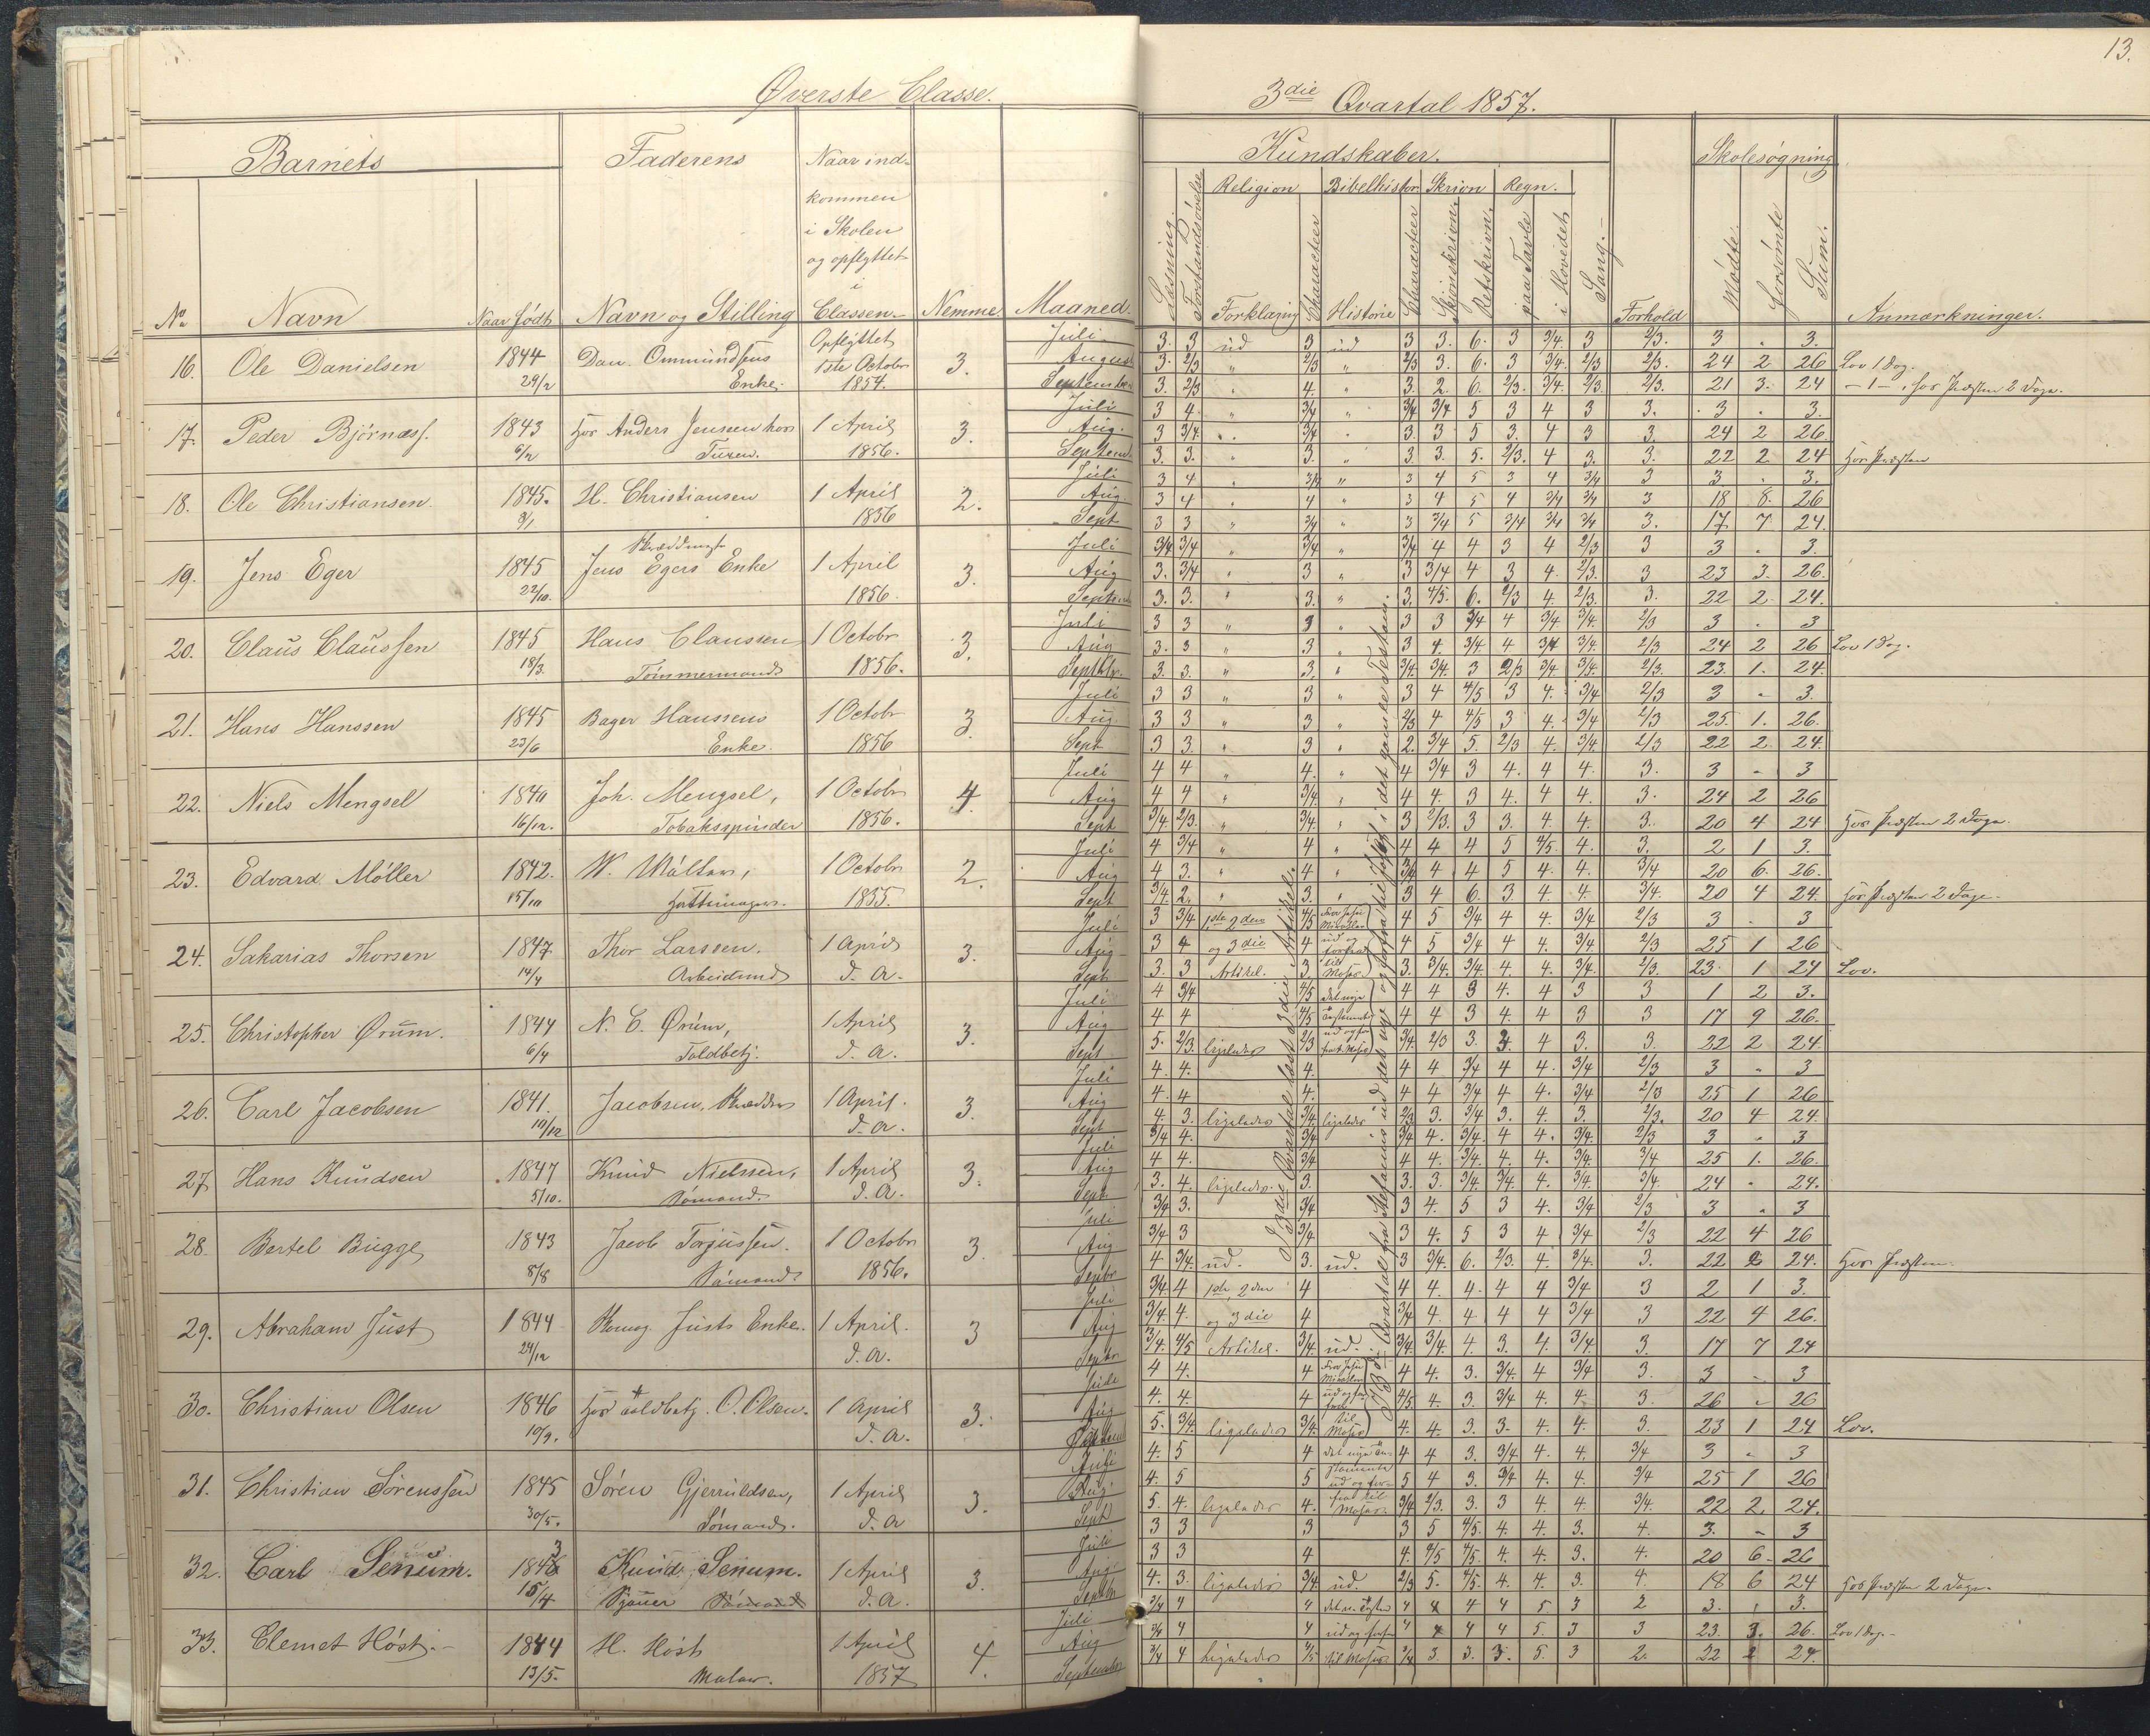 13.
Øverste Classe.
3die Qvartal 1857.
Barnets
Faderens
Naar ind-
kommen
i Skolen
og opflyttet
i
Classen.
Kundskaber.
Skolesøgning
Religion Bibelhistor Skrivn Regn.
No Navn Naar født Navn og Stilling Nemme Maaned.
Læsning. Forstandsøvelse Forklaring Character Historie Character Skjønskrivn. Retskrivn. paa Tavle i Hovedet Sang. Forhold Mødte. Forsømte Sum. Anmærkninger.
Opflyttet Juli 3. 3 ud 3 ud 3 3. 6. 3 3/4. 3 2/3. 3 . 3.
16. Ole Danielsen 1844 Dan. Ommundsens 1ste Octobr 3. August 3. 2/3 " 2/3 " 2/3 3. 6. 3 3/4. 2/3 2/3. 24 2 26 Lov 1 Dag.
29/2 Enke. 1854. September 3. 2/3 " 4. " 3. 2. 6. 2/3. 3/4. 2/3. 2/3. 21 3. 24 -1-, hos Præsten 2 Dage.
Juli 3 4. " 3/4 " 3/4 3/4 5 3 4 3 3. 3 . 3.
17. Peder Bjørnæss. 1843 hos Anders Jensen hos 1 April 3. Aug. 3 3/4. " 3/4 " 3. 3 5 3. 4 3 3. 24 2 26.
6/2 1856. Septem. 3. 3. " 3. " 3. 3. 5. 2/3. 4 3. 3. 22 2 24 hos Præsten
Juli 3 4 " 3/4 " 3 4 5 3 4 3/4 3 3. . 3.
18. Ole Christiansen. 1845. H. Christiansen 1 April 2. Aug. 3 4 " 4 " 3 4 5 4 3/4 3/4 3 18 8. 26
8/1 1856 Sept 3 3 " 3/4 " 3 3/4 5 3/4 3/4 3/4 3. 17 7 24.
Juli 3/4 3/4 " 3/4 " 3/4 4 4 3 4 2/3 3 3 . 3.
19. Jens Eger 1845 Jens Egers Enke 1 April 3. Aug 3. 3/4 " 3 " 3 3/4 4 3 4. 2/3. 3 23 3. 26.
22/10. 1856. Septemb 3. 3. " 3. " 3. 4/5. 6. 2/3 4. 2/3. 3. 22 2 24.
Juli 3 3 " 3 " 3 3 3/4 4 3/4. 3/4. 2/3 3 . 3
20. Claus Claussen 1845 Hans Claussen 1 Octobr 3. Aug 3. 3 " 3 " 3 4. 3/4 4 3/4 3/4. 2/3 24 2 26 Lov 1 Dag.
18/3. Tømmermand 1856. Septbr. 3. 3. " 3. " 3/4. 3/4. 3 2/3 3/4 3/4. 2/3. 23. 1. 24.
Juli 3 3 " 3 " 3 4 4/5 3 4. 3/4 2/3 3 - 3.
21. Hans Hanssen 1845 Bager Hanssens 1 Octobr 3. Aug. 3 3 " 3 " 2/3 4 4/5 3 4. 3/4 2/3 25. 1. 26.
23/6 Enke. 1856 Sept 3 3. " 3 " 2. 3/4 5. 2/3 4. 3/4 2/3 22 2. 24.
Juli 4 4 " 4. " 4 3/4 3 4. 4 4. 3. 3 - 3
22. Niels Mengsel 1840 Joh. Mengsel, 1 Octobr 4. Aug 4 4 " 3/4. " 4 4. 3 4. 4 4. 3. 24 2 26
16/12. Tobaksspinder 1856. Sept 3/4. 2/3. " 3/4. " 3 2/3. 3 3. 4 4. 3. 20 4 24 hos Præsten 2 Dage.
Juli 4 3/4 " 4 " 4 4 4 5 4/5. 4. 3. 2 1 3.
23. Edvard Møller 1842. 1 Octobr 2. Aug 4 3. " 4 " 3/4 4 4 5 4. 4. 3/4 20 6. 26.
15/10 Hattemager. 1855. Sept 3/4. 2. " 3. " 3 4 6. 3. 4. 4. 3/4. 20 4 24. hos Præsten 2 Dage.
Juli 3 3/4 1ste, 2den 4/5 4 5 3/4 4 4. 3/4 2/3 3 . 3
24. Sakarias Thorsen 1847 Thor Larssen. 1 April 3. Aug 3 4 og 3die 4 ud og 4 5 3/4 4 4. 3/4. 2/3 25 1 26
14/4 Arbeidsmd d. A. Sept 3. 3 Artikel. 3. Moses 3. 3/4. 3/4. 4. 4. 3/4. 2/3. 23. 1 24 Lov.
Juli 4 3/4 4/5 det nye 4 4 3 4. 4 3 3 1 2 3.
25. Christopher Ørum. 1844 N. C. Ørum, 1 April 3. Aug 4 4 4/5 4 4 3 4. 4 3 3 17 9 26.
6/4 Toldbetj. d. A. Sept 5. 2/3. ligeledes 2/3 3/4. 2/3 3. 3. 4 3. 3. 22 2 24.
Juli 4. 4. 4. 4 4 3/4 4 4. 3/4 2/3 3 - 3
26. Carl Jacobsen 1841. Jacobsen, Skrædder 1 April. 3. Aug 4. 4 4. 4 4 3/4 4. 4. 3/4 2/3 25 1 26
10/12 d. A. Sept 4. 3. ligeledes 3/4. ligeledes 2/3 3. 3/4 3. 4. 3. 2/3. 20 4 24.
Juli 3/4 4. 3/4 3/4 4. 3/4. 4 4. 3/4. 2/3 3 - 3
27. Hans Knudsen 1847 Knud Nielssen, 1 April 3. Aug 4 4. 3/4 4 4. 3/4. 4. 4. 3/4. 3/4 25 1. 26.
5/10. Sømand. d. A. Sept 3. 4. ligeledes. 3. 3. 3. 3/4. 3/4. 4. 3/4. 3/4. 24 - 24.
Juli 3/4 3. 3/4 3 4. 5 3 4. 3/4 2/3 3 - 3
28. Bertel Bugge 1843 Jacob Torjussen. 1 Octobr 3. Aug 3/4 3 3/4 3 4. 5 3 4 3/4 2/3 22 4 26
8/8 Sømand. 1856. Septbr 4 3/4. ud. 3. ud. 3 3/4. 6. 2/3. 4. 3/4. 3. 22 2 24. hos Præsten.
Juli 3/4. 4 1ste, 2den 4 4 4. 4. 4 4 3/4 3 2 1 3.
29. Abraham Just 1844 Just's Enke. 1 April. 3 Aug 3/4 4. og 3die 4 3/4 4. 4 4 4 3/4 3 22 4 26.
24/12 d. A. Septbr 3/4. 4/5 Artikel. 3/4. ud. 3/4. 3/4. 4. 3. 4. 3/4. 3. 17 7 24
Juli 4 4. 4 4 4. 3. 3/4. 4 3/4 3. 3 - 3
30. Christian Olsen 1846 hos Toldbetj. O. Olsen. 1 April 3. Aug 4. 4. 4 4/5 4. 3. 3/4 4. 4. 3. 26 - 26
10/9. d. A. Septem 5. 3/4. ligeledes 3/4. Moses 4. 4. 3. 3. 4. 4. 3. 23 1 24 Lov.
Juli 4. 5 4 det nye 4 4 3. 3/4 4. 4. 3/4 3 - 3
31. Christian Sørenssen 1845 Søren Gjeruldsen, 1 April 3. Aug 4. 5 5 5 4 3. 3/4 4. 4. 3/4 25 1 26
30/5. Sømand. d. A Sept 5. 4. ligeledes 4. Moses. 3/4 2/3. 3. 3 4 4. 3/4. 22 2 24.
Juli 3 3 3 3 5 4/5. 4. 4. 3. 4. 3. - 3
32. Carl Senum. 1843 Knud Senum. 1 April 3. Aug 3 3 4 4. 4/5 4/5. 4. 4. 3. 4. 20 6- 26
15/4 Sømand d. A. Septbr 4. 3. ligeledes 3/4. ud. 2/3 5. 4/5. 4. 4. 3. 4. 18 6 24 hos Præsten 2 Dage.
Juli 3/4 4 4 4 4 4 4 5. 3 2 3. . 3.
33. Clemet Höst. 1844 H. Höst 1 April 4. Aug 3/4 4 4 4 4 4 4 5. 3 3 23. 3. 26. Lov 1 Dag.
13/5. Maler. 1857 September 3/4 4 ligeledes 4/5 til Moses 3/4 3. 3. 3. 5. 3 2. 22 2 24.